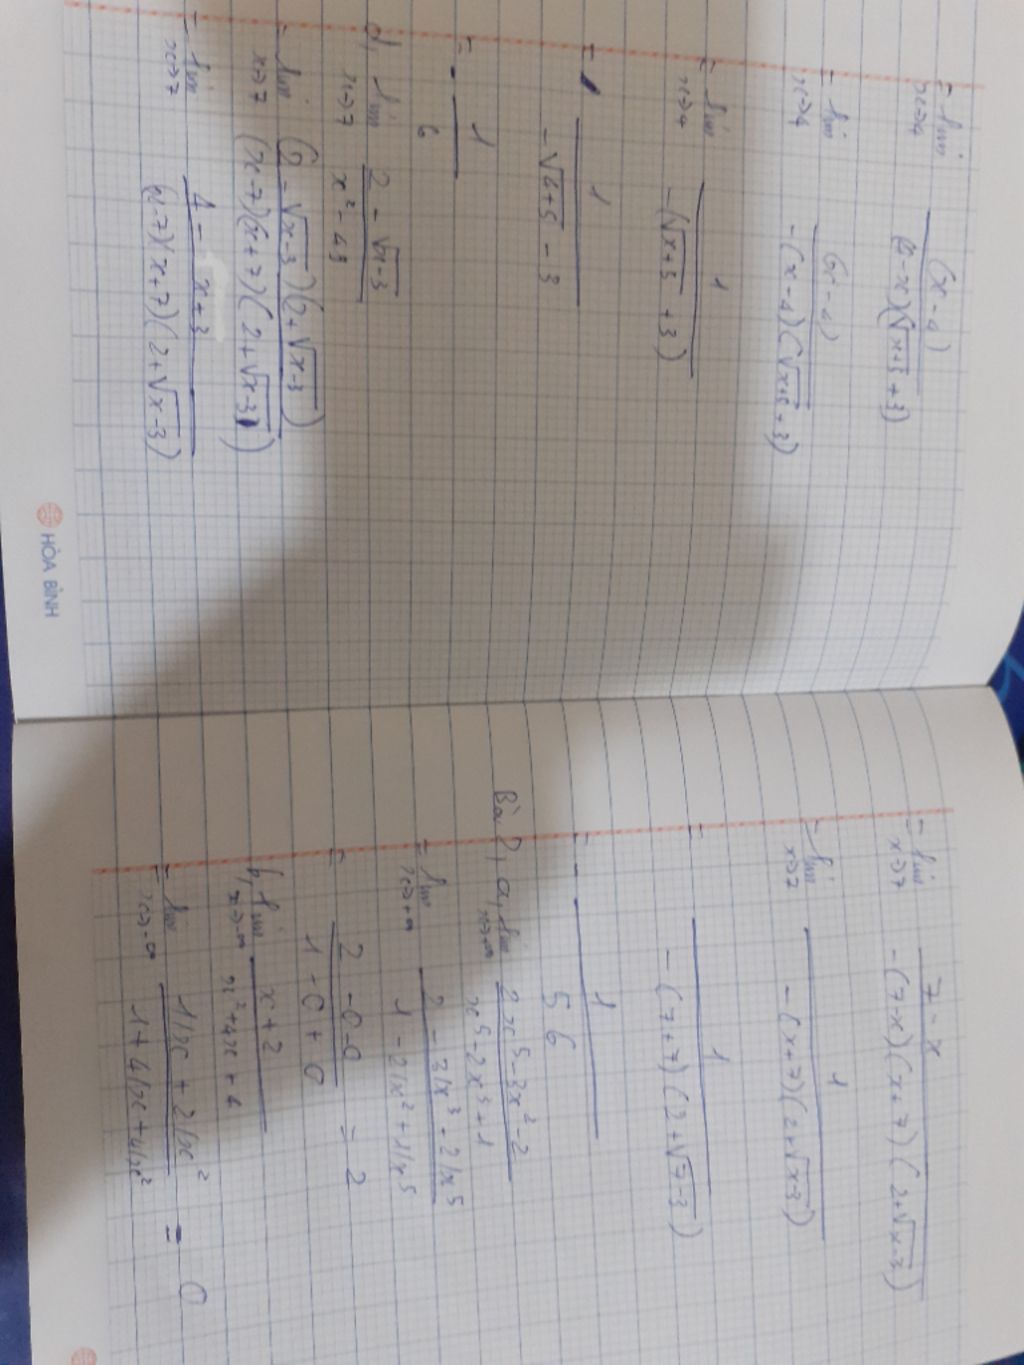 = lim x→4 (x-4) / (4-x)(√x+5 + 3)
= lim x→4 (x-4) / -(x-4)(√x+5 + 3)
= lim x→4 1 / -(√x+5 + 3)
= 1 / -√4+5 - 3
= - 1 / 6
d, lim x→7 2 - √x-3 / x² - 49
= lim x→7 (2 - √x-3)(2+√x-3) / (x-7)(x+7)(2+√x-3)
= lim x→7 4 - x+3 / (x-7)(x+7)(2+√x-3)
HÒA BÌNH
= lim x→7 7-x / -(7-x)(x+7)(2+√x-3)
= lim x→7 1 / -(x+7)(2+√x-3)
= 1 / -(7+7)(2+√7-3)
= - 1 / 56
Bài 2, a, lim 2x⁵-3x²-2 / x⁵-2x³+1
= lim x→+∞ 2 - 3/x³ - 2/x⁵ / 1 - 2/x² + 1/x⁵
= 2 - 0 - 0 / 1 - 0 + 0 = 2
b, lim x→-∞ x+2 / x²+4x+4
= lim x→-∞ 1/x + 2/x² / 1 + 4/x + 4/x² = 0